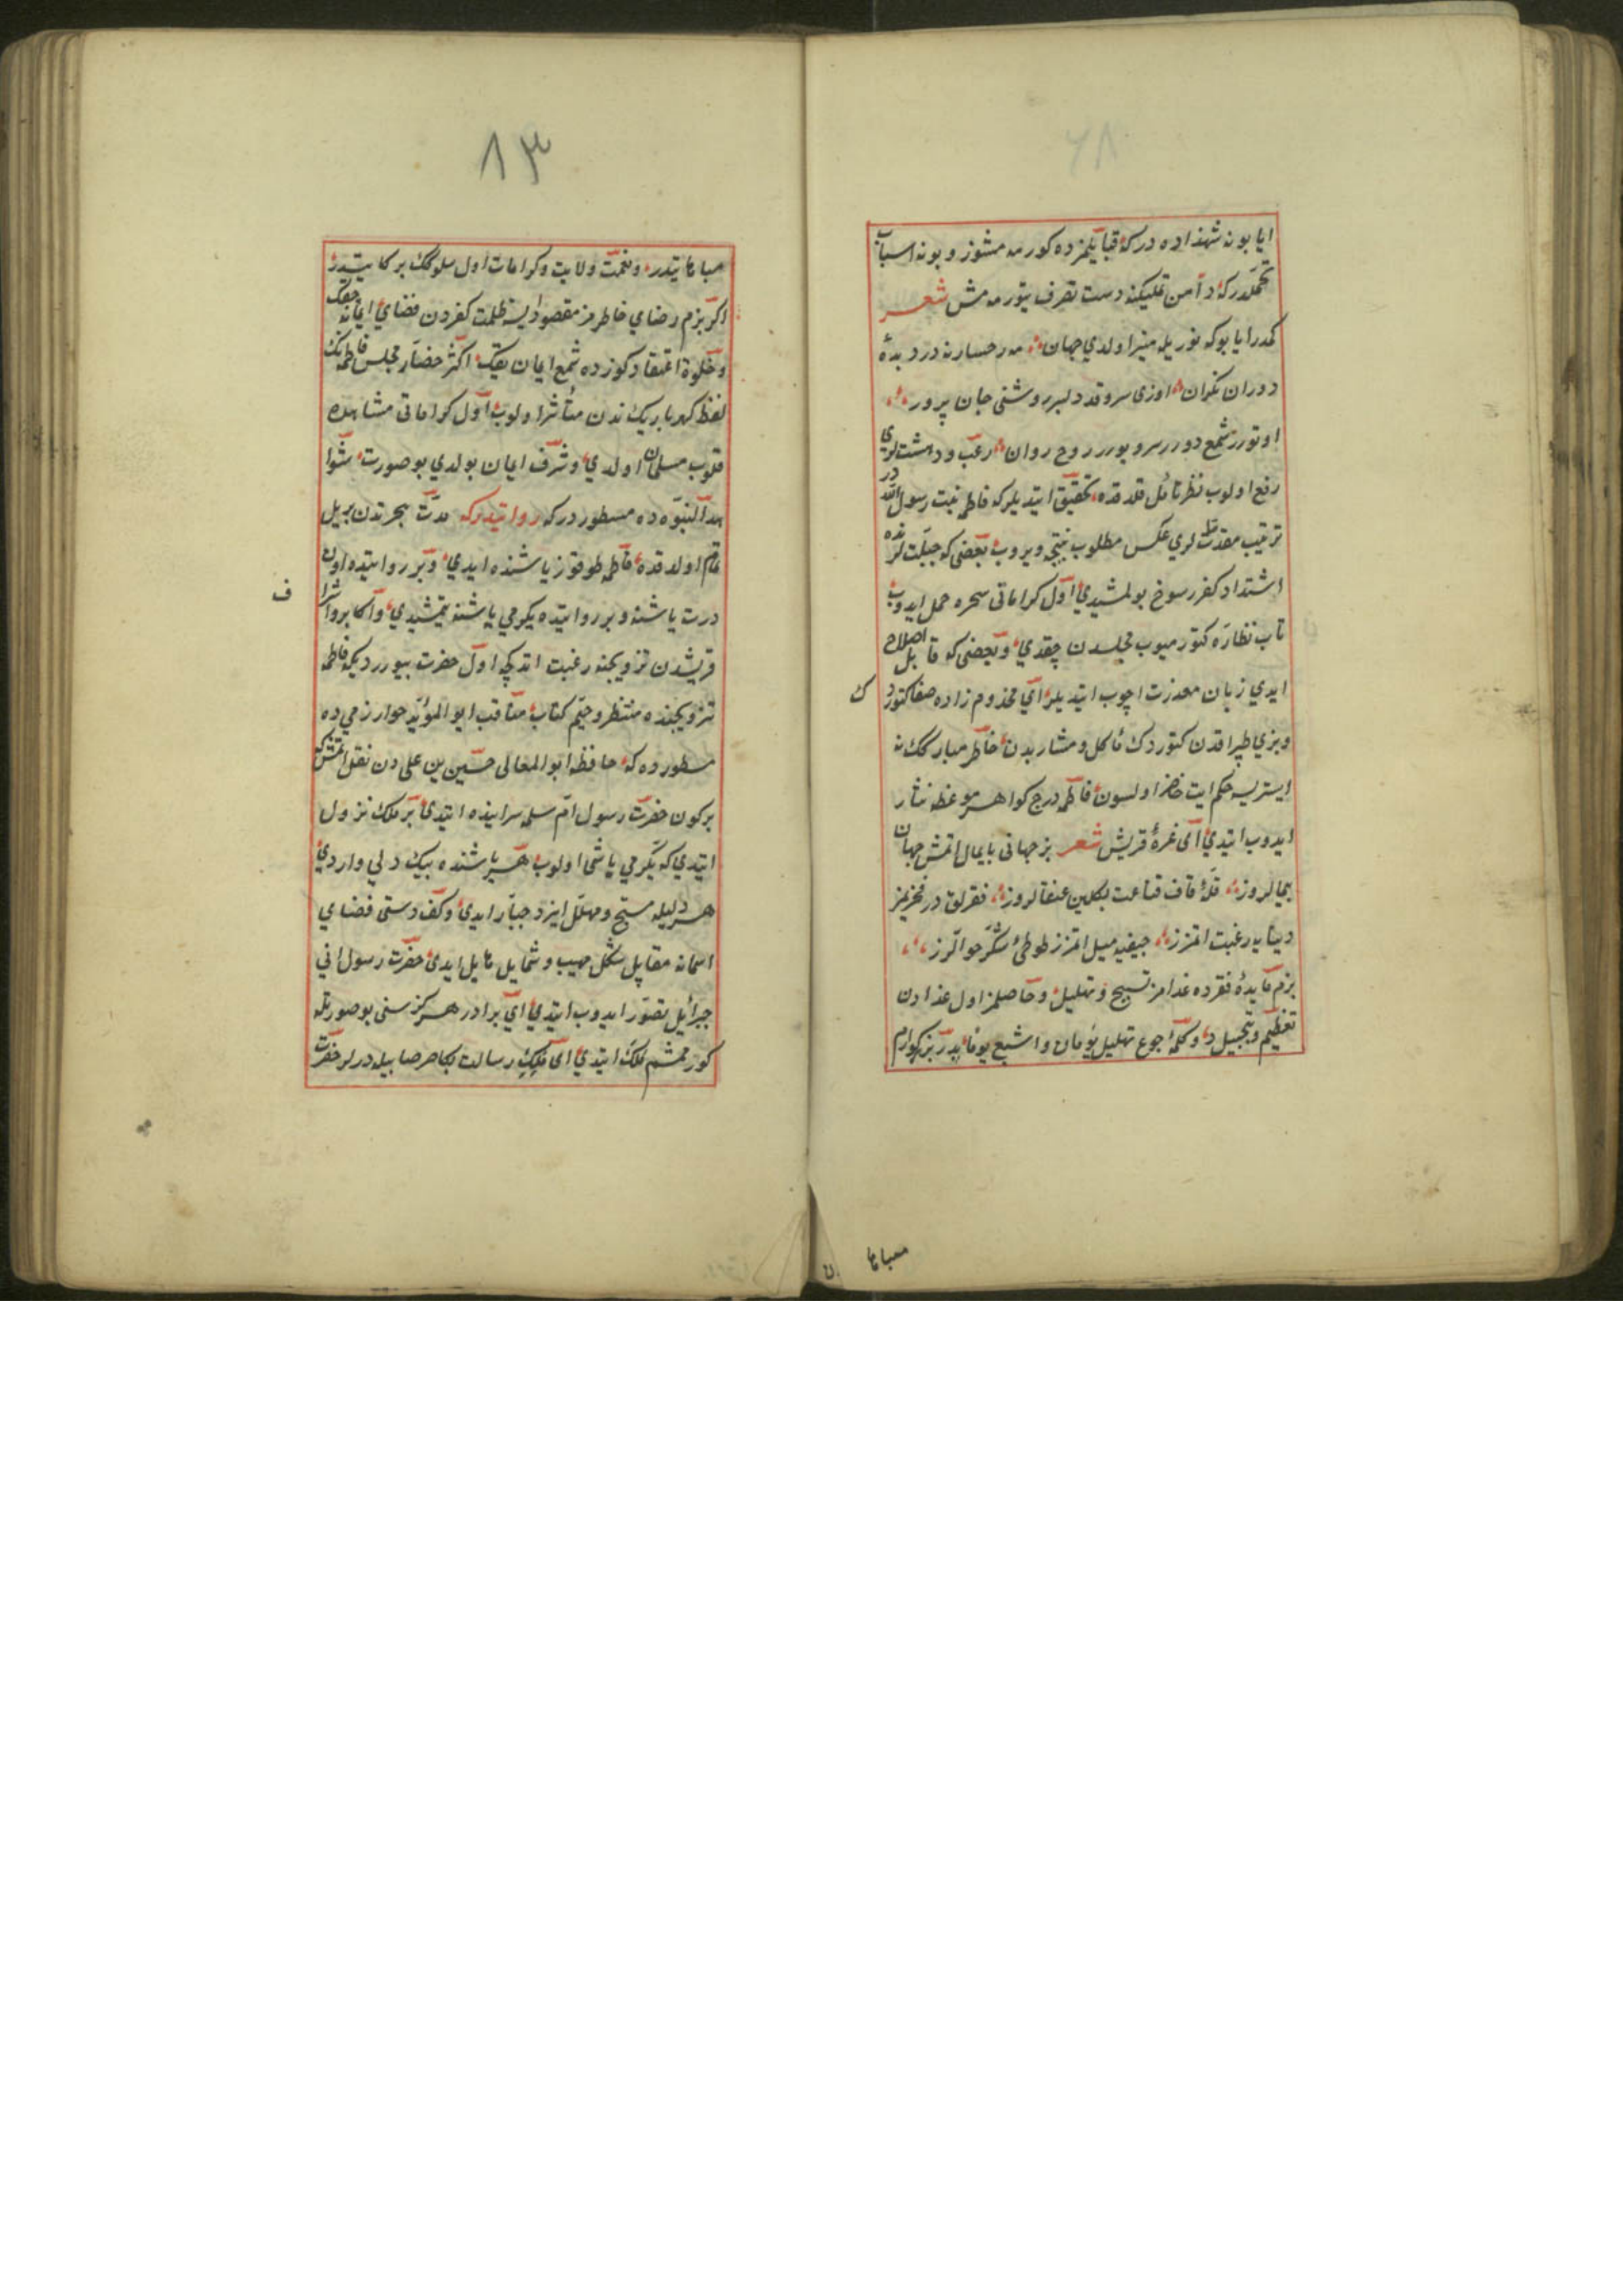 ٦٨
ايا بو نه شهزاده در كه قبايلمزده كورمه مشوز و بو نه اسباب
تجملدر كه دامن تمليكنه دست تصرف يتورمه مش شعر
كمدر ايا بو كه نوريله منير اولدي جهان مه رخسارنه در ديدهٔ
دوران نكران اوزى سرو قد دلبر روشنى جان پرور
اوتورر شمع دورر سرو يورر روح روان رعب و دهشت لرى
رفع اولوب نظر تأمل قلدقده تحقيق ايتديلر كه فاطمه بنت رسول اللّه در
ترتيب مقدمت لري عكس مطلوب نتيجه ويروب بعضى كه جبلت لرنده
اشتداد كفر رسوخ بولمشيدي اول كراماتى سحره حمل ايدوب
تاب نظاره كتورميوب مجلسدن چقدي و بعضى كه قابل اصلاح
ايدي زبان معذرت اچوب ايتديلر اي مخدوم زاده صفا كتوردك
و بزي طپراقدن كتوردك مأكل و مشاربدن خاطر مباركك نه
ايستريسه حكم ايت حاضر اولسون فاطمه درج كواهر موعظه نثار
ايدوب ايتدي اى غرهٔ قريش شعر بز جهانى پايمال اتمش جهان
پيمالروز قلهٔ قاف قناعت بكلين عنقالروز فقرلق در فخريمز
دنيايه رغبت اتمزز جيفيه ميل اتمزز طوطئ شكر خوالرز
بزم مايدهٔ فقرده غدامز تسبيح و تهليل و حاصلمز اول غذادن
تعظيم و تبجيل در و كلمهٔ اجوع تهليل يومان و اشبع يوما پدر بزركوارم
ك
مباها
٨٣
مباهاتيدر و نعمت ولايت و كرامات اول سلوكك بركاتيدر
اكر بزم رضاي خاطرمز مقصود ايسه ظلمت كفردن فضاي ايمانه چقك
و خلوة اعتقادكوزده شمع ايمان يقك اكثر حضار مجلس فاطمه نك
لفظ كهرباريك ندن متأثر اولوب اول كراماتى مشاهده
قلوب مسلمان اولدي و شرف ايمان بولدي بو صورت شوا
هد النبوه ده مسطور در كه روايتدر كه مدت هجرتدن بر ييل
تمام اولدقده فاطمه طوقوز ياشنده ايدي و بر روايتده اون
درت ياشنه و بر روايتده يكرمي ياشنه يتمشيدي و اكابر و اشراف
قريشدن تزويجنه رغبت اتدكچه اول حضرت بيوررديكه فاطمه
تزويجنده منتظر وحيم كتاب مناقب ابو المؤيد خوارزمي ده
مسطور ده كه حافظ ابو المعالى حسين بن على دن نقل اتمش كه
بر كون حضرت رسول ام سلمه سراينده ايتدى بر ملك نزول
ايتدي كه يكرمي باشى اولوب هر باشنده بيك دلي واردي
هر دليله مسبح و مهلل ايزد جبار ايدى و كف دستى فضاي
اسمانه مقابل شكل مهيب و شمايل هايل ايدى حضرت رسول انى
جبرائيل تصور ايدوب ايتدي اي برادر هركز سنى بو صورتله
كورممشم ملك ايتدي اى ملك رسالت بكا صرصاييل ديرلر حضرت
ف